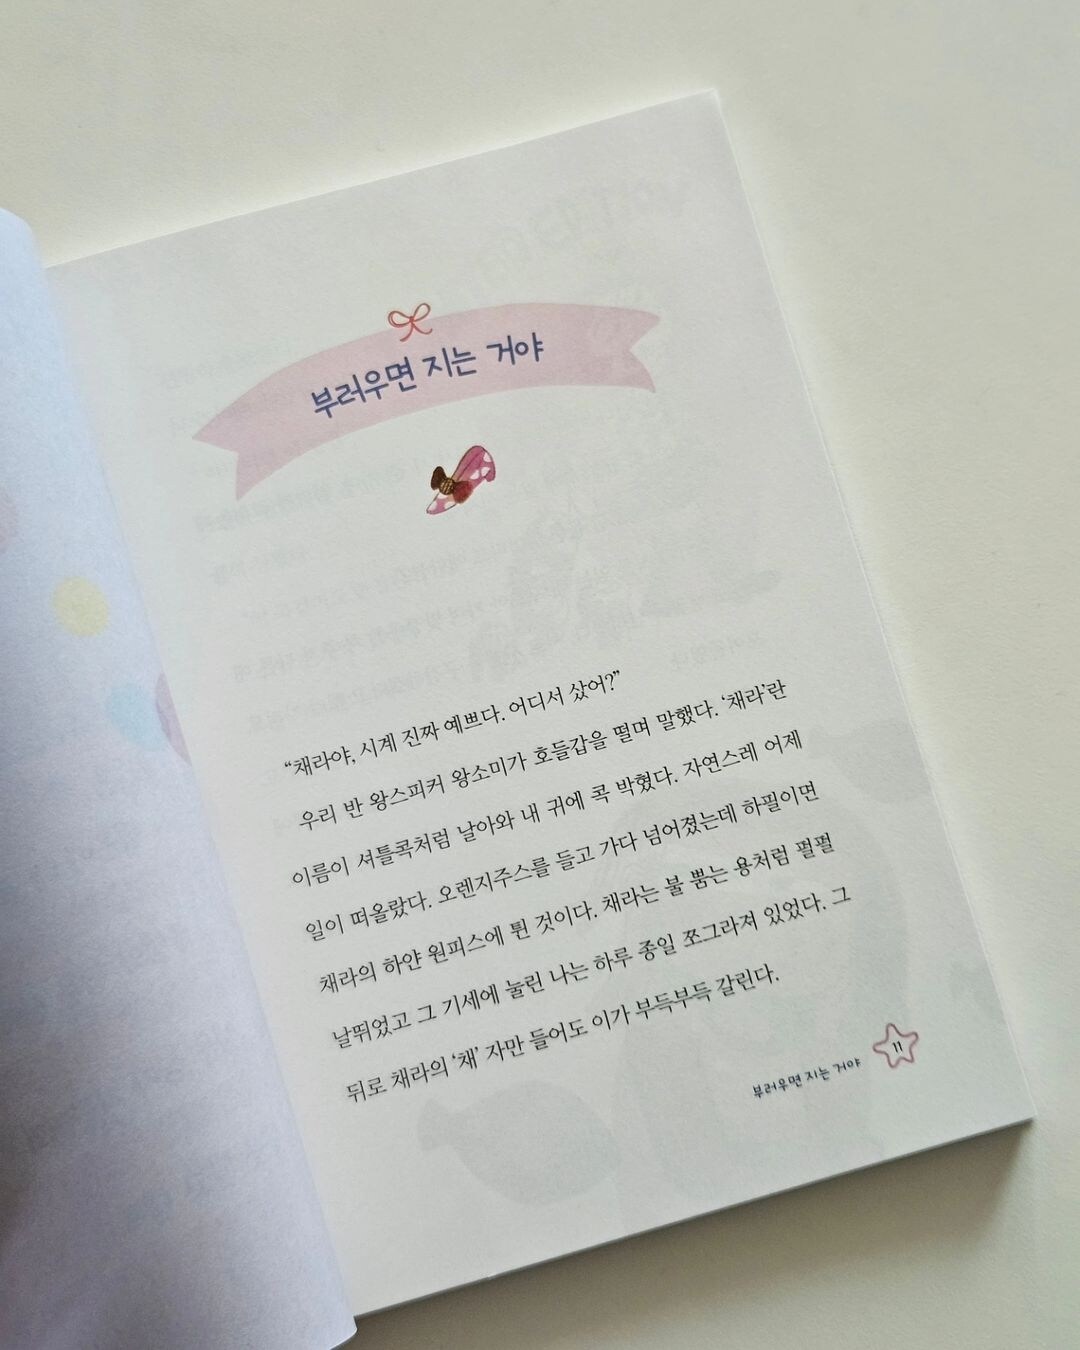 부러우면 지는 거야
“채라야, 시계 진짜 예쁘다. 어디서 샀어?”
우리 반 왕스피커 왕소미가 호들갑을 떨며 말했다. ‘채라’란
이름이 셔틀콕처럼 날아와 내 귀에 콕 박혔다. 자연스레 어제
일이 떠올랐다. 오렌지주스를 들고 가다 넘어졌는데 하필이면
채라의 하얀 원피스에 튄 것이다. 채라는 불 뿜는 용처럼 펄펄
날뛰었고 그 기세에 눌린 나는 하루 종일 쪼그라져 있었다. 그
뒤로 채라의 ‘채’ 자만 들어도 이가 부득부득 갈린다.
부러우면 지는 거야 11